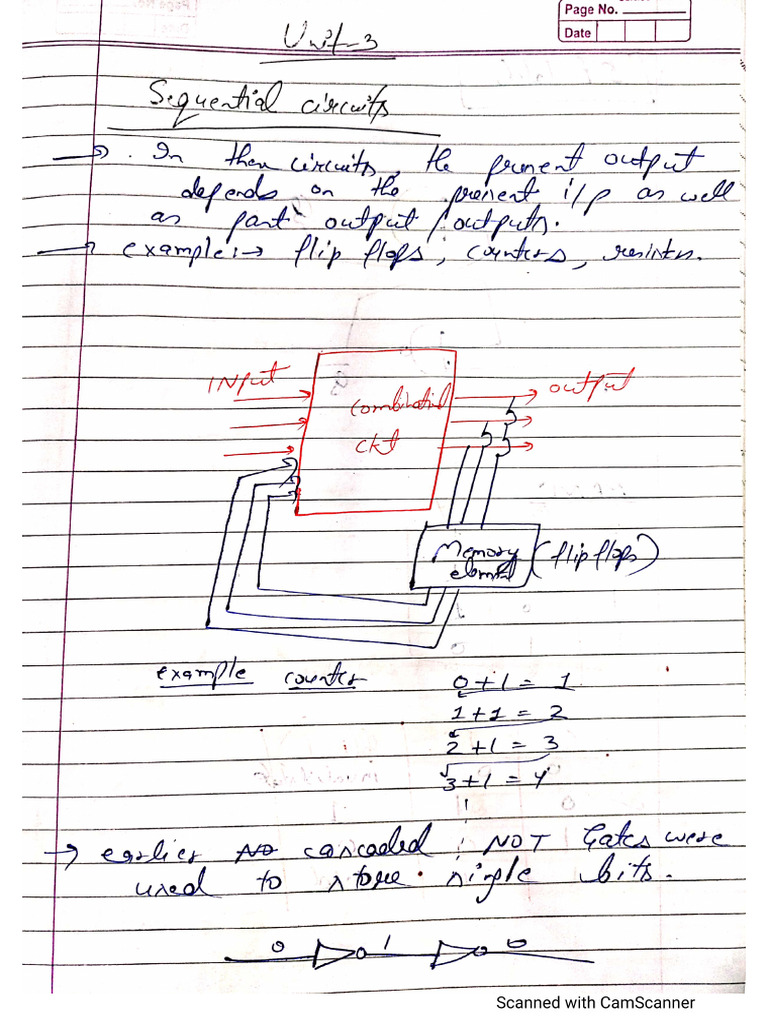 Page No.
Date
Unit-3
Sequential circuits
→ . In these circuits, the present output
depends on the present i/p as well
as past output / outputs.
→ example:→ flip flops, counters, resistrs.
INput
output
combinational
ckt
Memory
element
(flip flops)
example counter
0+1 = 1
1+1 = 2
2+1 = 3
3+1 = 4
→ earlier No cascaded NOT Gates were
used to store single bits.
0 1 0
Scanned with CamScanner